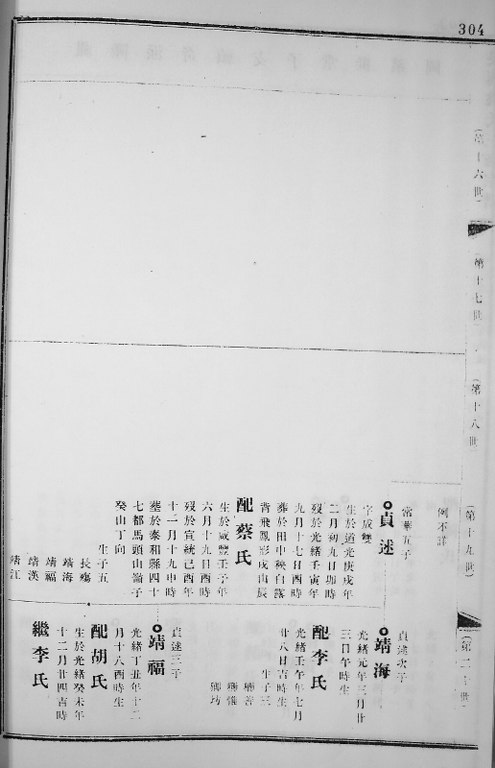 304
(第十六世)
第十七世
(第十八世)
(第十九世)
何不詳
常華五子
貞述
字成雙
生於道光庚戌年
二月初九日卯時
歿於光緒壬寅年
九月十七日酉時
葬於田中秧白露
背飛鳳形戌山辰
配蔡氏
生於咸豐壬子年
六月十九日酉時
歿於宣統己酉年
十二月十九申時
墓於泰和縣四十
七都馬頭山崙子
癸山丁向
生子五
長殤
靖海
靖福
靖漢
靖江
貞述次子
靖海
光緒元年三月廿
三日午時生
配李氏
光緒壬午年七月
廿八日吉時生
生子三
貞述三子
靖福
光緒丁丑年十二
月十八酉時生
配胡氏
生於光緒癸未年
十二月廿四吉時
繼李氏